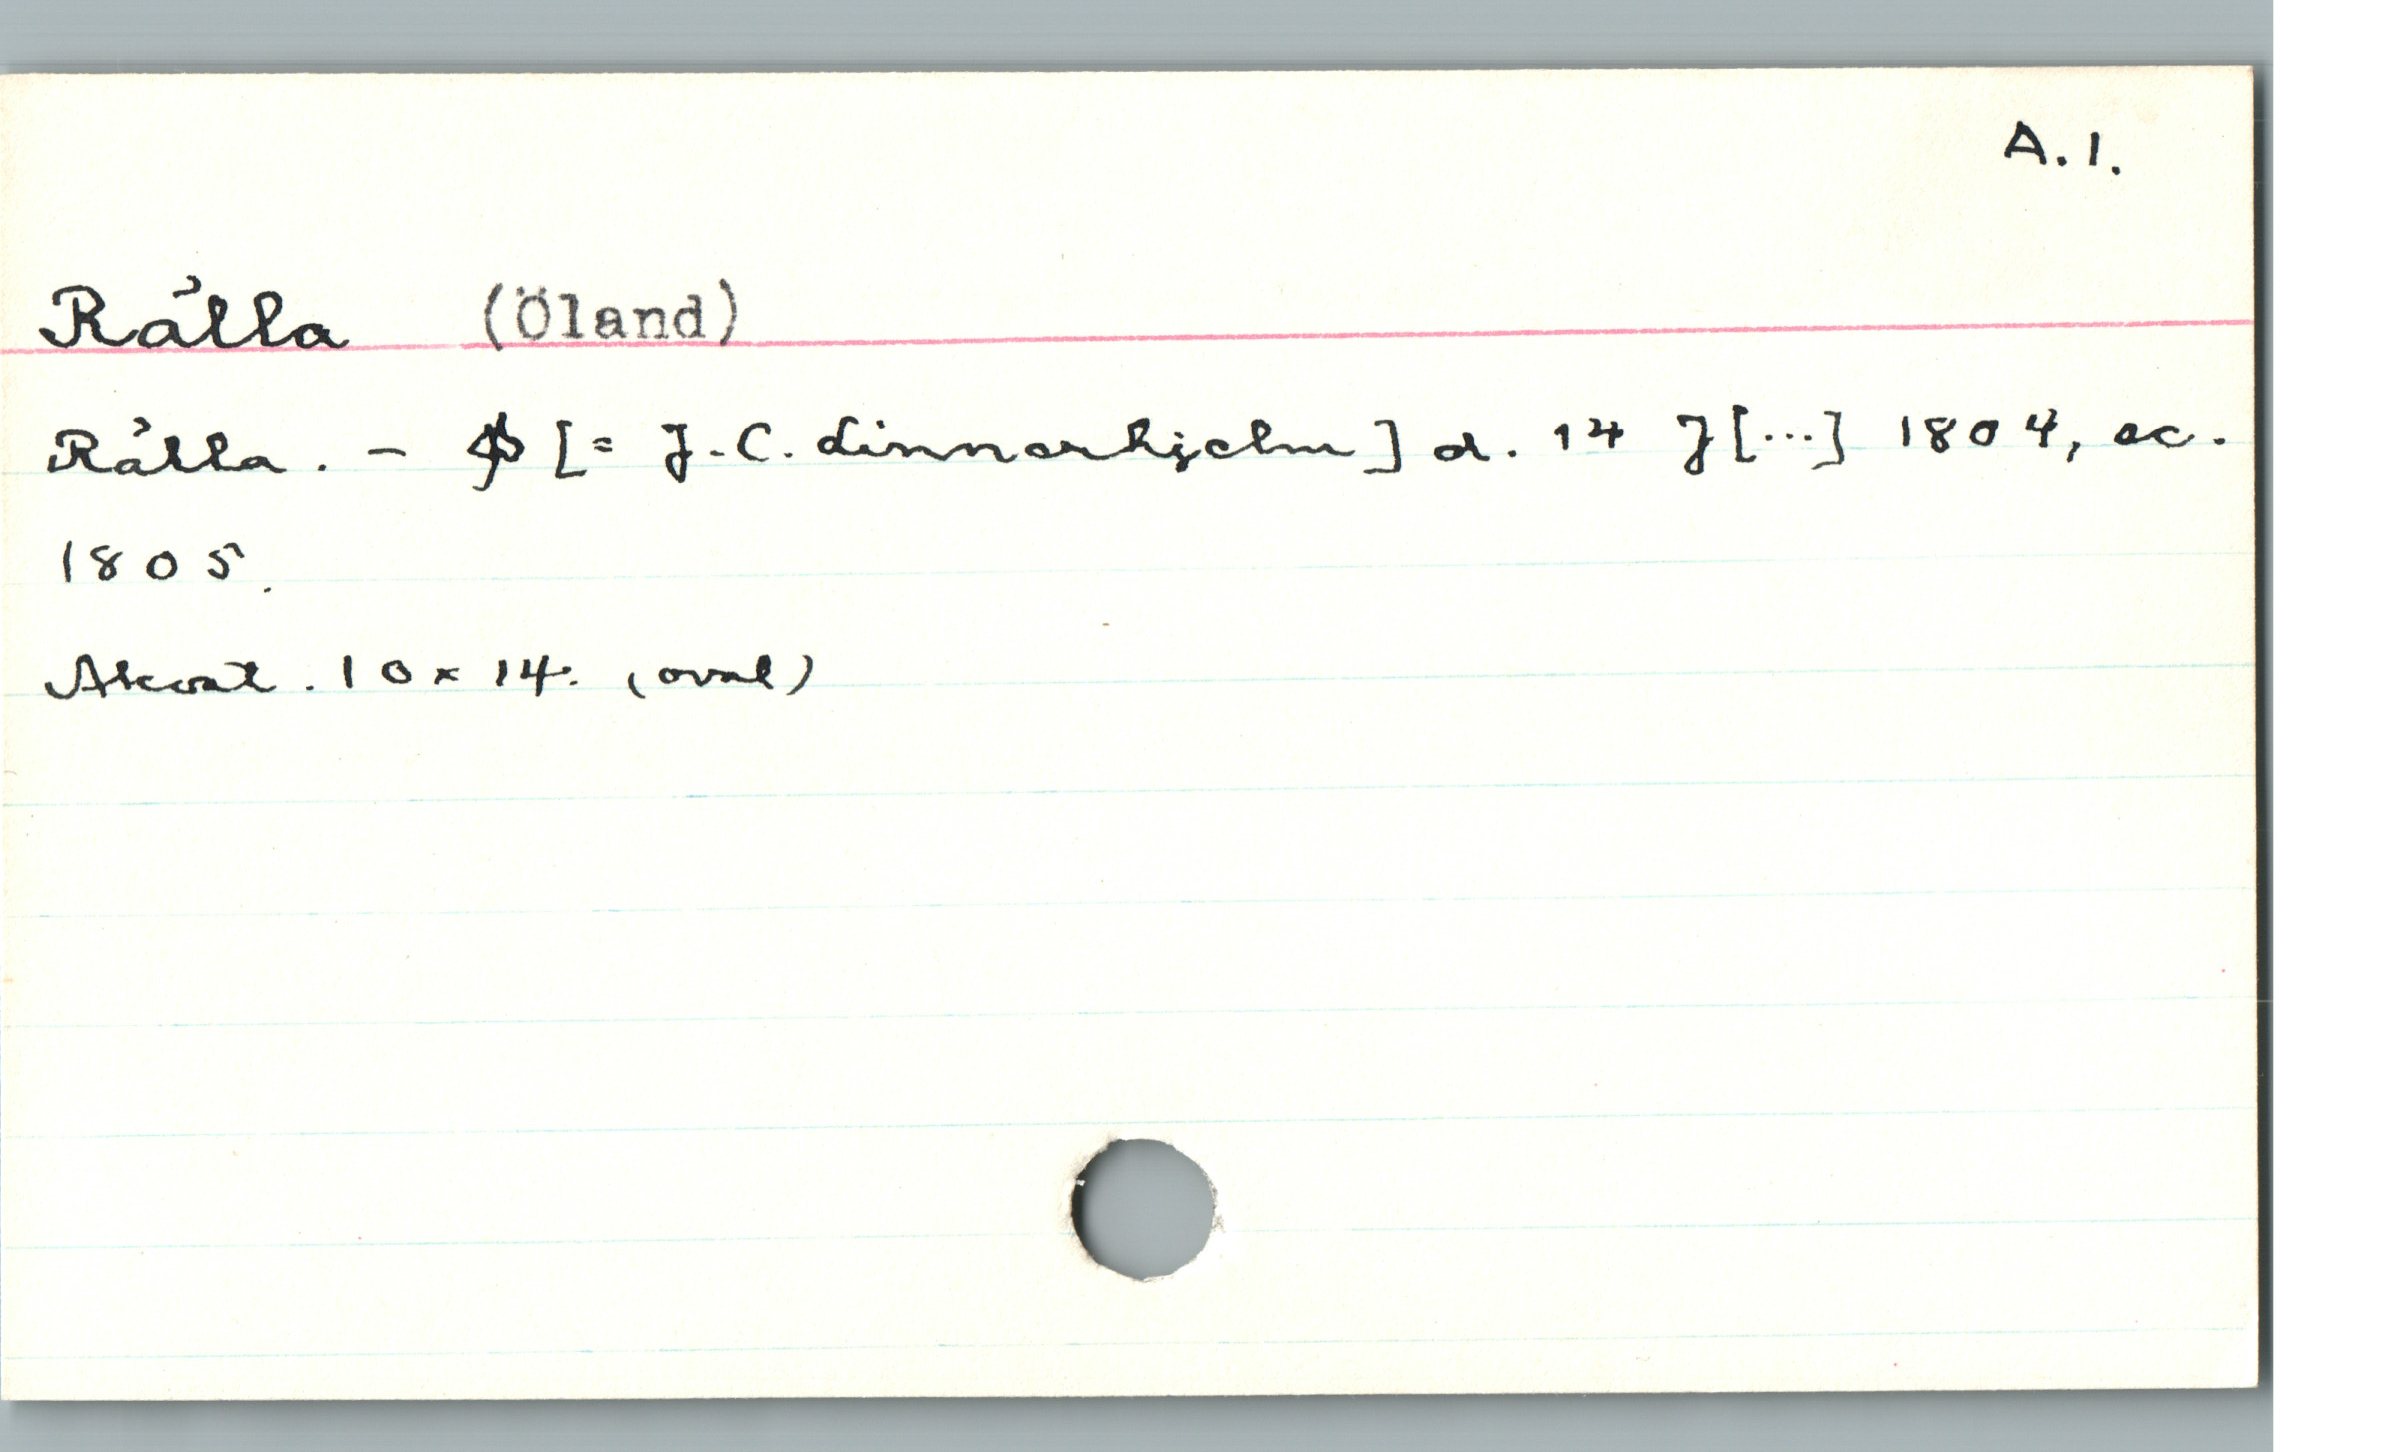 A.1.
Rälla (Öland)
Rälla. - [= J.C. Linnerhjelm] d. 14 J[...] 1804, sc.
1805.
Akvat. 10 x 14. (oval)